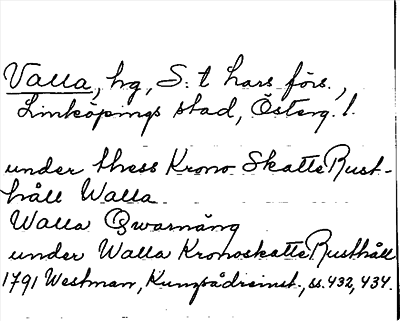 Valla, hg, S:t Lars förs.,
Linköpings stad, Österg. l.
under thess Krono Skatte Rust-
håll Walla
Walla Qwarnäng
under Walla KronoskatteRusthåll
1791 Westman, Kungsådreinst., ss. 432, 434.